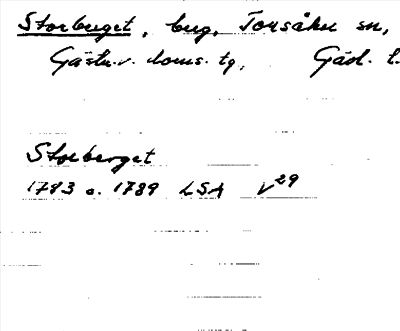 Storberget, bug, Torsåker sn,
Gästr.v. doms. tg, Gävl. l.
Storberget
1783 o. 1789 LSA V29